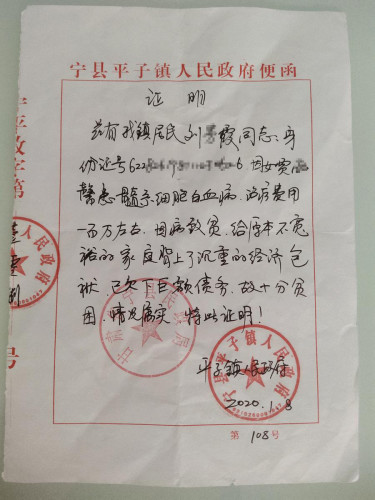 宁县平子镇人民政府便函
证 明
兹有我镇居民刘霞同志,身
份证号622 6 因女贾
馨患髓系细胞白血病,治疗费用
一百万左右,因病致贫,给原本不宽
裕的家庭背上了沉重的经济包
袱,已欠下巨额债务,故十分贫
困,情况属实,特此证明!
平子镇人民政府
2020.1.8
第 108 号
宁县平子镇人民政府
甘肃宁县民政局
平政字第
人民政府
号